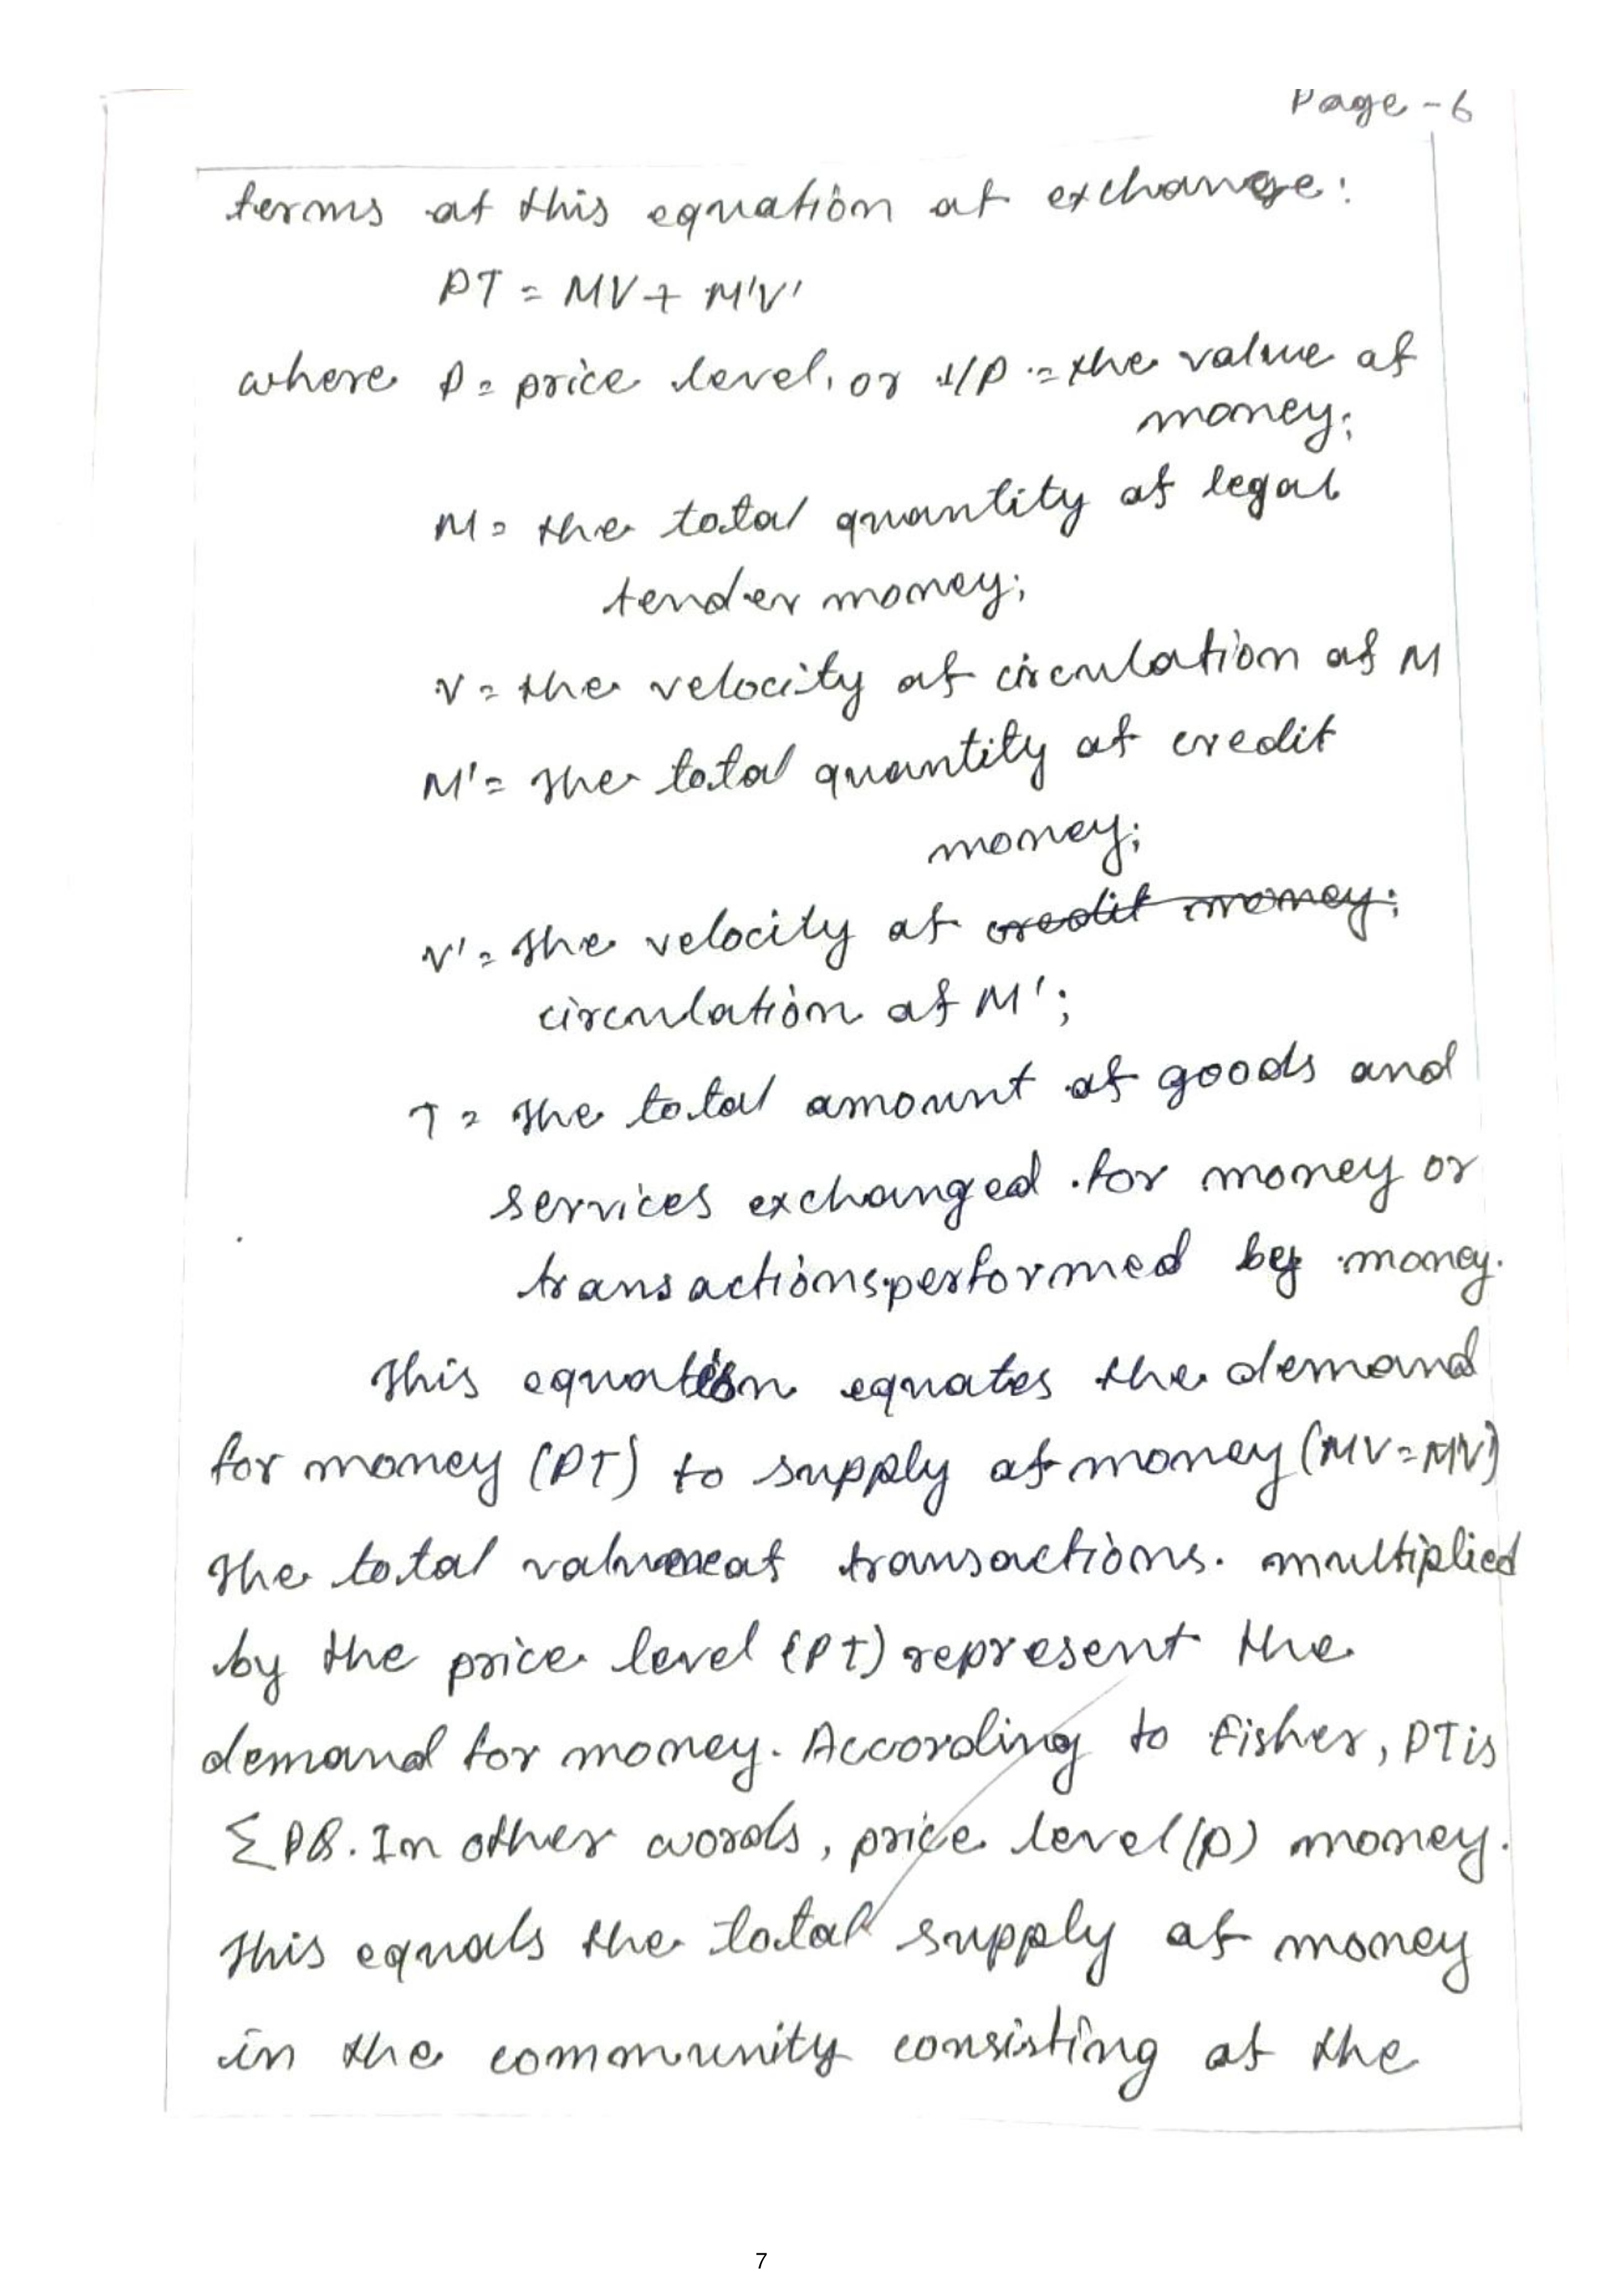 Page - 6
terms of this equation of exchange:
PT = MV + M'V'
where P = price level, or 1/P = the value of
money;
M = the total quantity of legal
tender money;
V = the velocity of circulation of M
M' = The total quantity of credit
money;
V' = The velocity of credit money;
circulation of M';
T = The total amount of goods and
services exchanged for money or
transactions performed by money.
This equation equates the demand
for money (PT) to supply of money (MV = MV)
The total value of transactions. multiplied
by the price level (PT) represent the
demand for money. According to Fisher, PT is
ΣPQ. In other words, price level (P) money.
This equals the total supply of money
in the community consisting of the
7